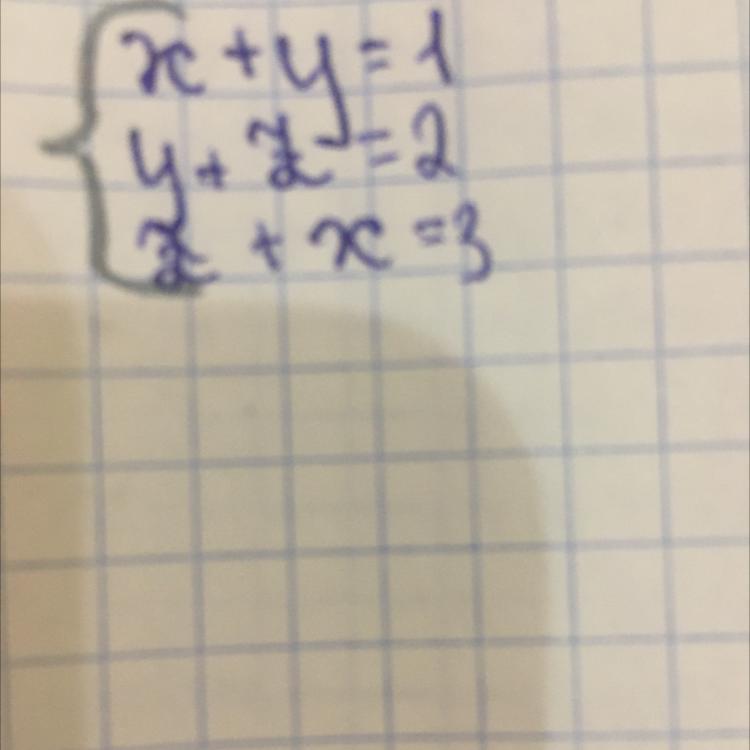 x + y = 1
y + z = 2
z + x = 3